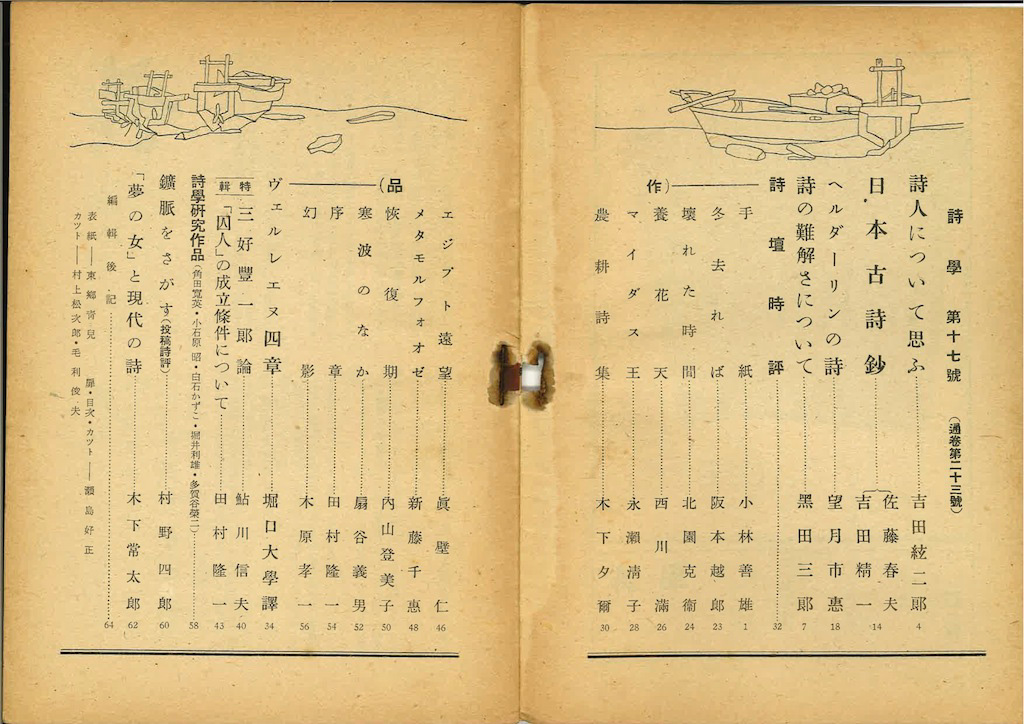 詩學 第十七號 (通卷第二十三號)
詩人について思ふ 吉田絃二郎 4
日本古詩鈔 佐藤春夫 吉田精一 14
ヘルダーリンの詩 望月市惠 18
詩の難解さについて 黑田三郎 7
詩壇時評 32
作)
手紙 小林善雄 1
冬去れば 阪本越郎 23
壞れた時間 北園克衞 24
養花天 西川滿 26
マイダス王 永瀨淸子 28
農耕詩集 木下夕爾 30
(品
エジプト遠望 眞壁仁 46
メタモルフォオゼ 新藤千惠 48
恢復期 內山登美子 50
寒波のなか 扇谷義男 52
序章 田村隆一 54
幻影 木原孝一 56
ヴェルレエヌ四章 堀口大學譯 34
特輯
三好豐一郞論 鮎川信夫 40
「囚人」の成立條件について 田村隆一 43
詩學硏究作品(角田寬英・小石原昭・白石かずこ・堀井利雄・多賀谷榮二) 58
鑛脈をさがす(投稿詩評) 村野四郎 60
「夢の女」と現代の詩 木下常太郎 62
編輯後記 64
表紙——東鄕靑兒 扉・目次・カツト——瀨島好正
カツト——村上松次郎・毛利俊夫